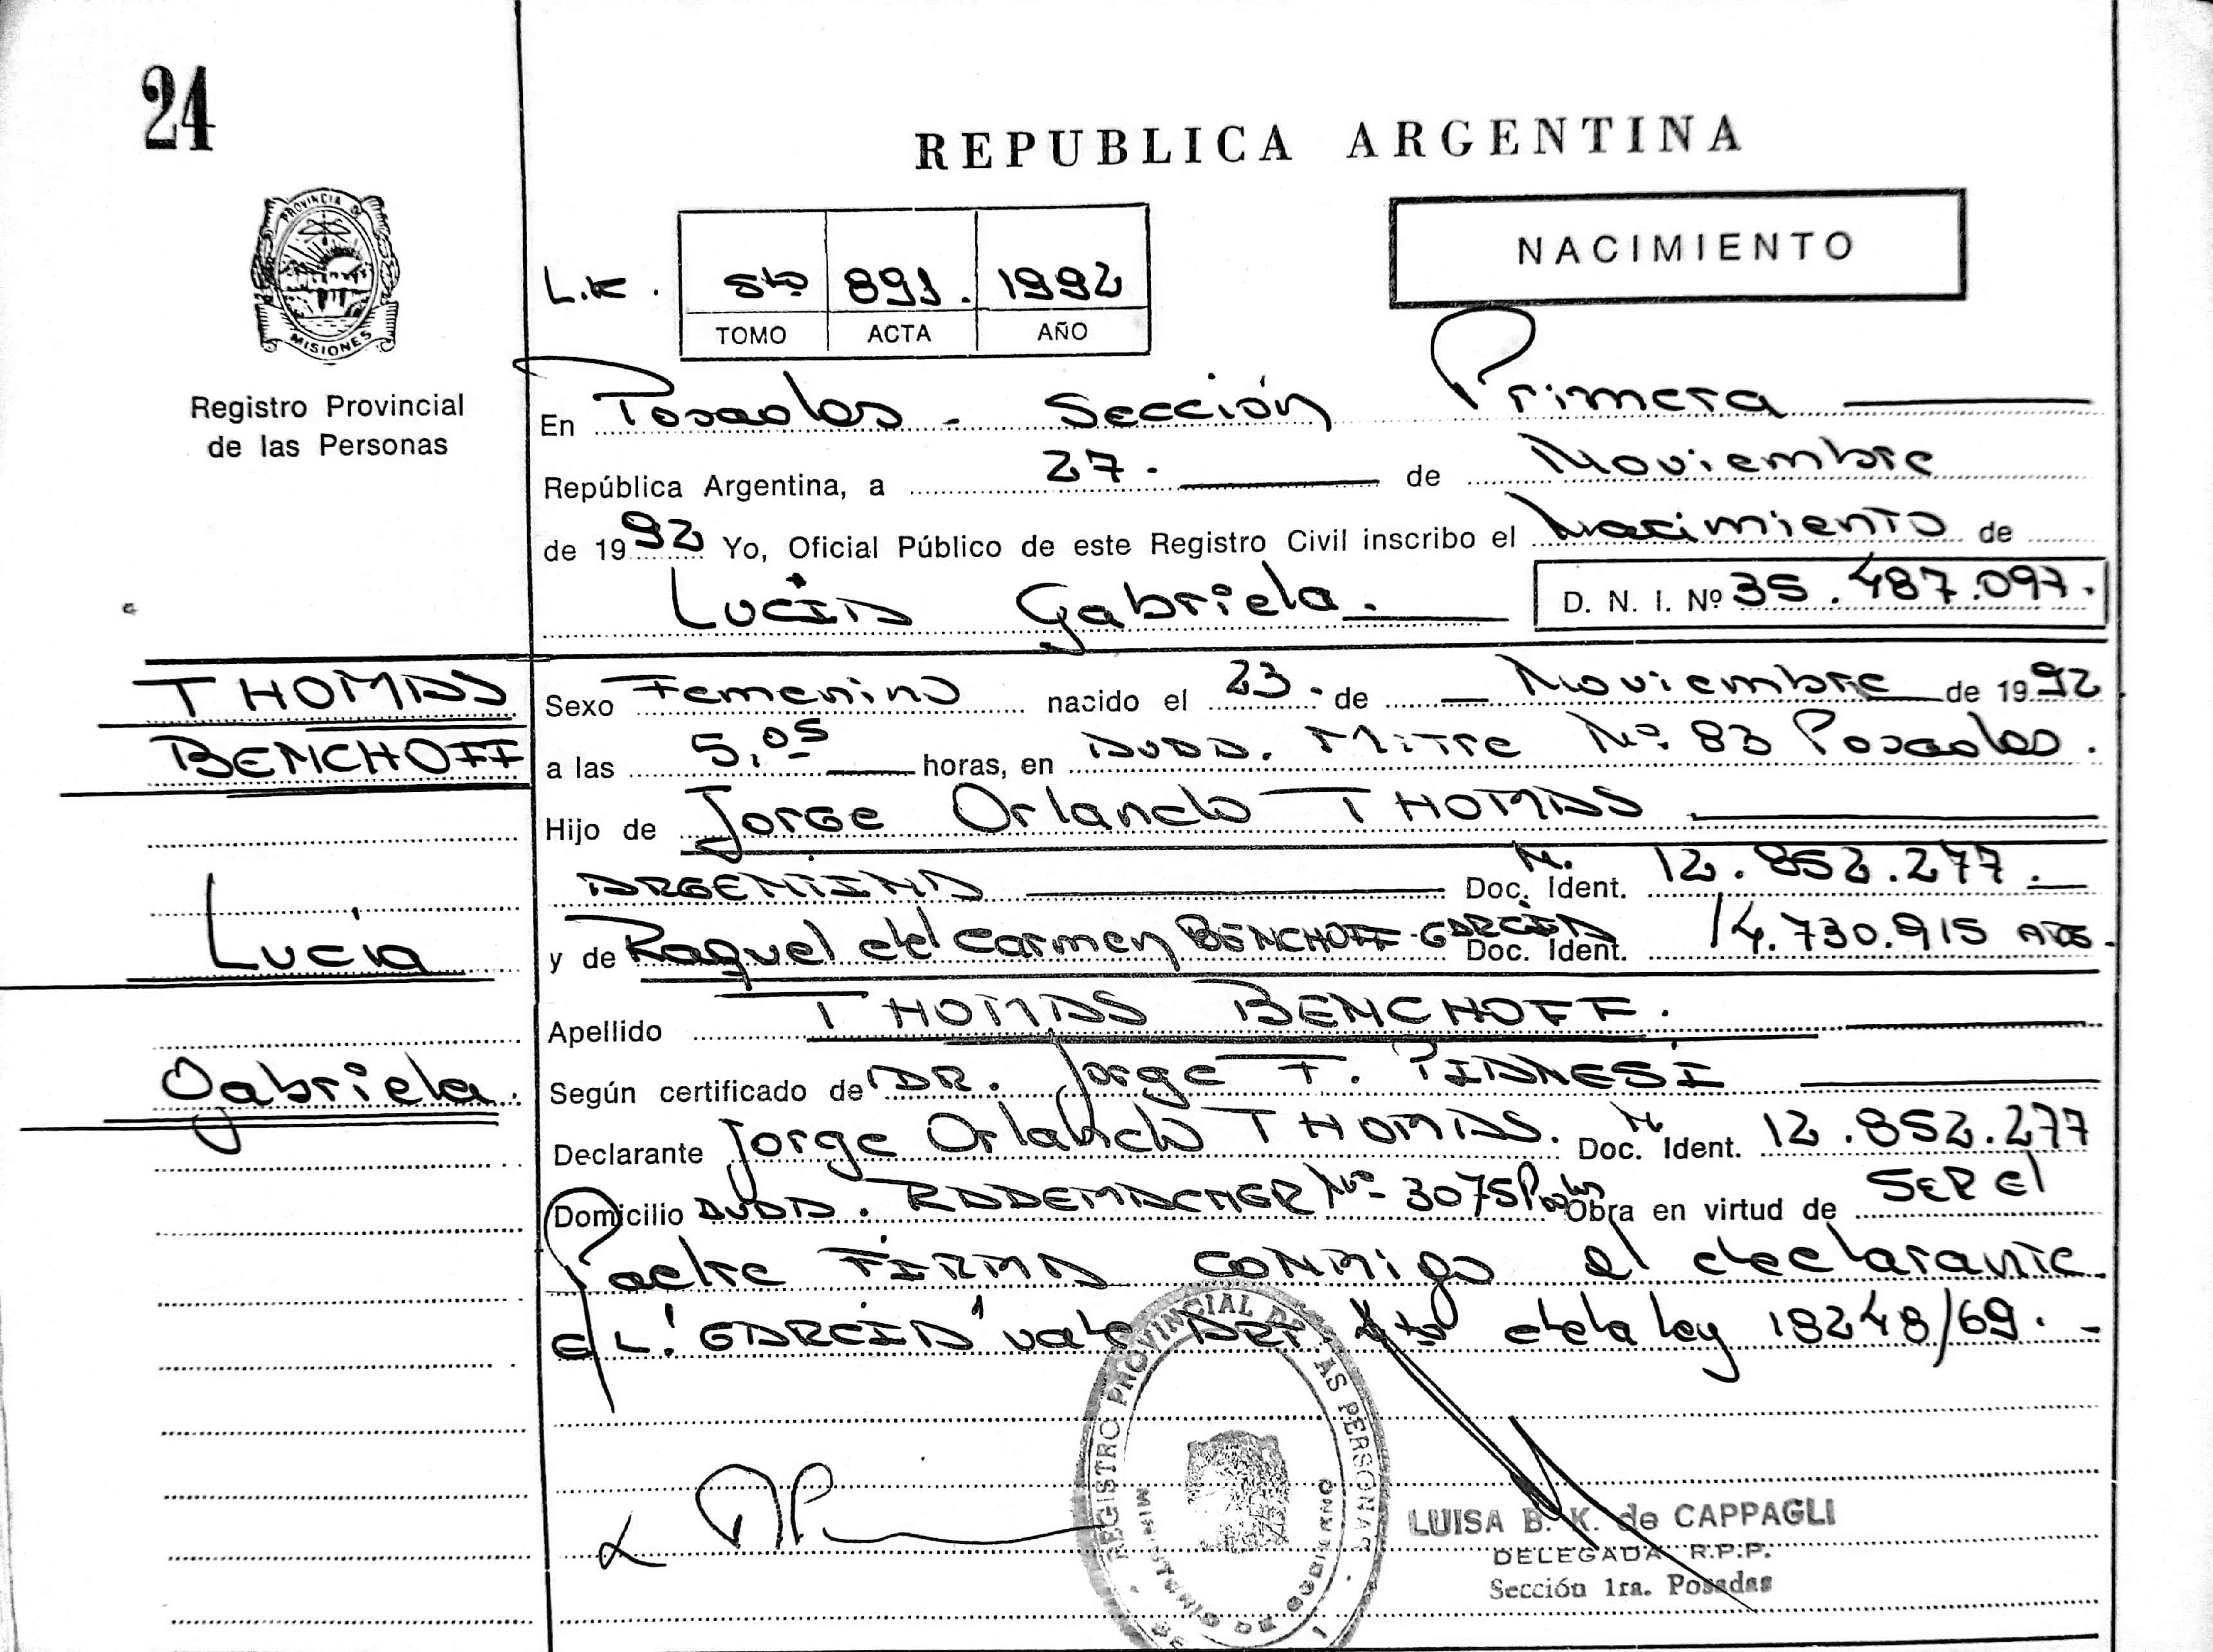 24
REPUBLICA ARGENTINA
PROVINCIA DE
MISIONES
Registro Provincial
de las Personas
NACIMIENTO
L.K. 5to 891. 1992
TOMO ACTA AÑO
En Posadas - Sección Primera
República Argentina, a 27. de Noviembre
de 1992 Yo, Oficial Público de este Registro Civil inscribo el Nacimiento de
Lucia Gabriela. D. N. I. Nº 35.487.097.
THOMAS
BENCHOFF
Lucia
Gabriela.
Sexo Femenino nacido el 23. de Noviembre de 1992
a las 5,05 horas, en Avda. Mitre Nº 83 Posadas.
Hijo de Jorge Orlando THOMAS
ARGENTINA Doc. Ident. M. 12.852.277.
y de Raquel del Carmen BENCHOFF-GARCIA Doc. Ident. 14.730.915 ADOS.
Apellido THOMAS BENCHOFF.
Según certificado de DR. Jorge F. PIANESI
Declarante Jorge Orlando THOMAS. Doc. Ident. M. 12.852.277
Domicilio AVDA. RADEMACHER Nº 3075 Pdas Obra en virtud de SER el
Padre FIRMA CONMigo el declarante
E/L: "GARCIA" vale ART. 4to de la ley 18248/69.-
REGISTRO PROVINCIAL DE LAS PERSONAS
MINISTERIO DE GOBIERNO
LUISA B. K. de CAPPAGLI
DELEGADA R.P.P.
Sección 1ra. Posadas